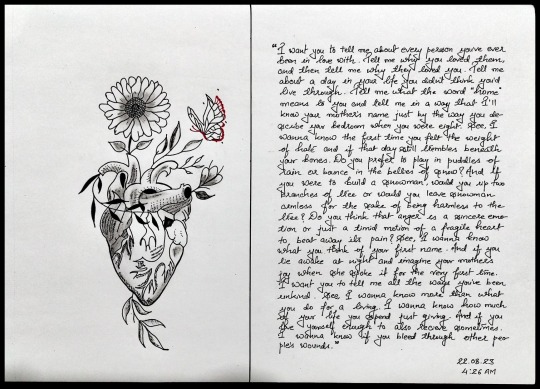 "I want you to tell me about every person you've ever
been in love with. Tell me why you loved them,
and then tell me why they loved you. Tell me
about a day in your life you didn't think you'd
live through. Tell me what the word "home"
means to you and tell me in a way that I'll
know your mother's name just by the way you de-
scribe your bedroom when you were eight. See, I
wanna know the first time you felt the weight
of hate and if that day still trembles beneath
your bones. Do you prefer to play in puddles of
rain or bounce in the bellies of snow? And if
you were to build a snowman, would you rip two
branches of tree or would you leave snowman
armless for the sake of being harmless to the
tree? Do you think that anger is a sincere emo-
tion or just a timid motion of a fragile heart
to beat away its pain? See, I wanna know
what you think of your first name. And if you
lie awake at night and imagine your mother's
joy when she spoke it for the very first time.
I want you to tell me all the ways you've been
unkind. See I wanna know more than what
you do for a living. I wanna know how much
of your life you spend just giving. And if you
love yourself enough to also receive sometimes.
I wanna know if you bleed through other peo-
ple's wounds."
22.08.23
4:26 AM